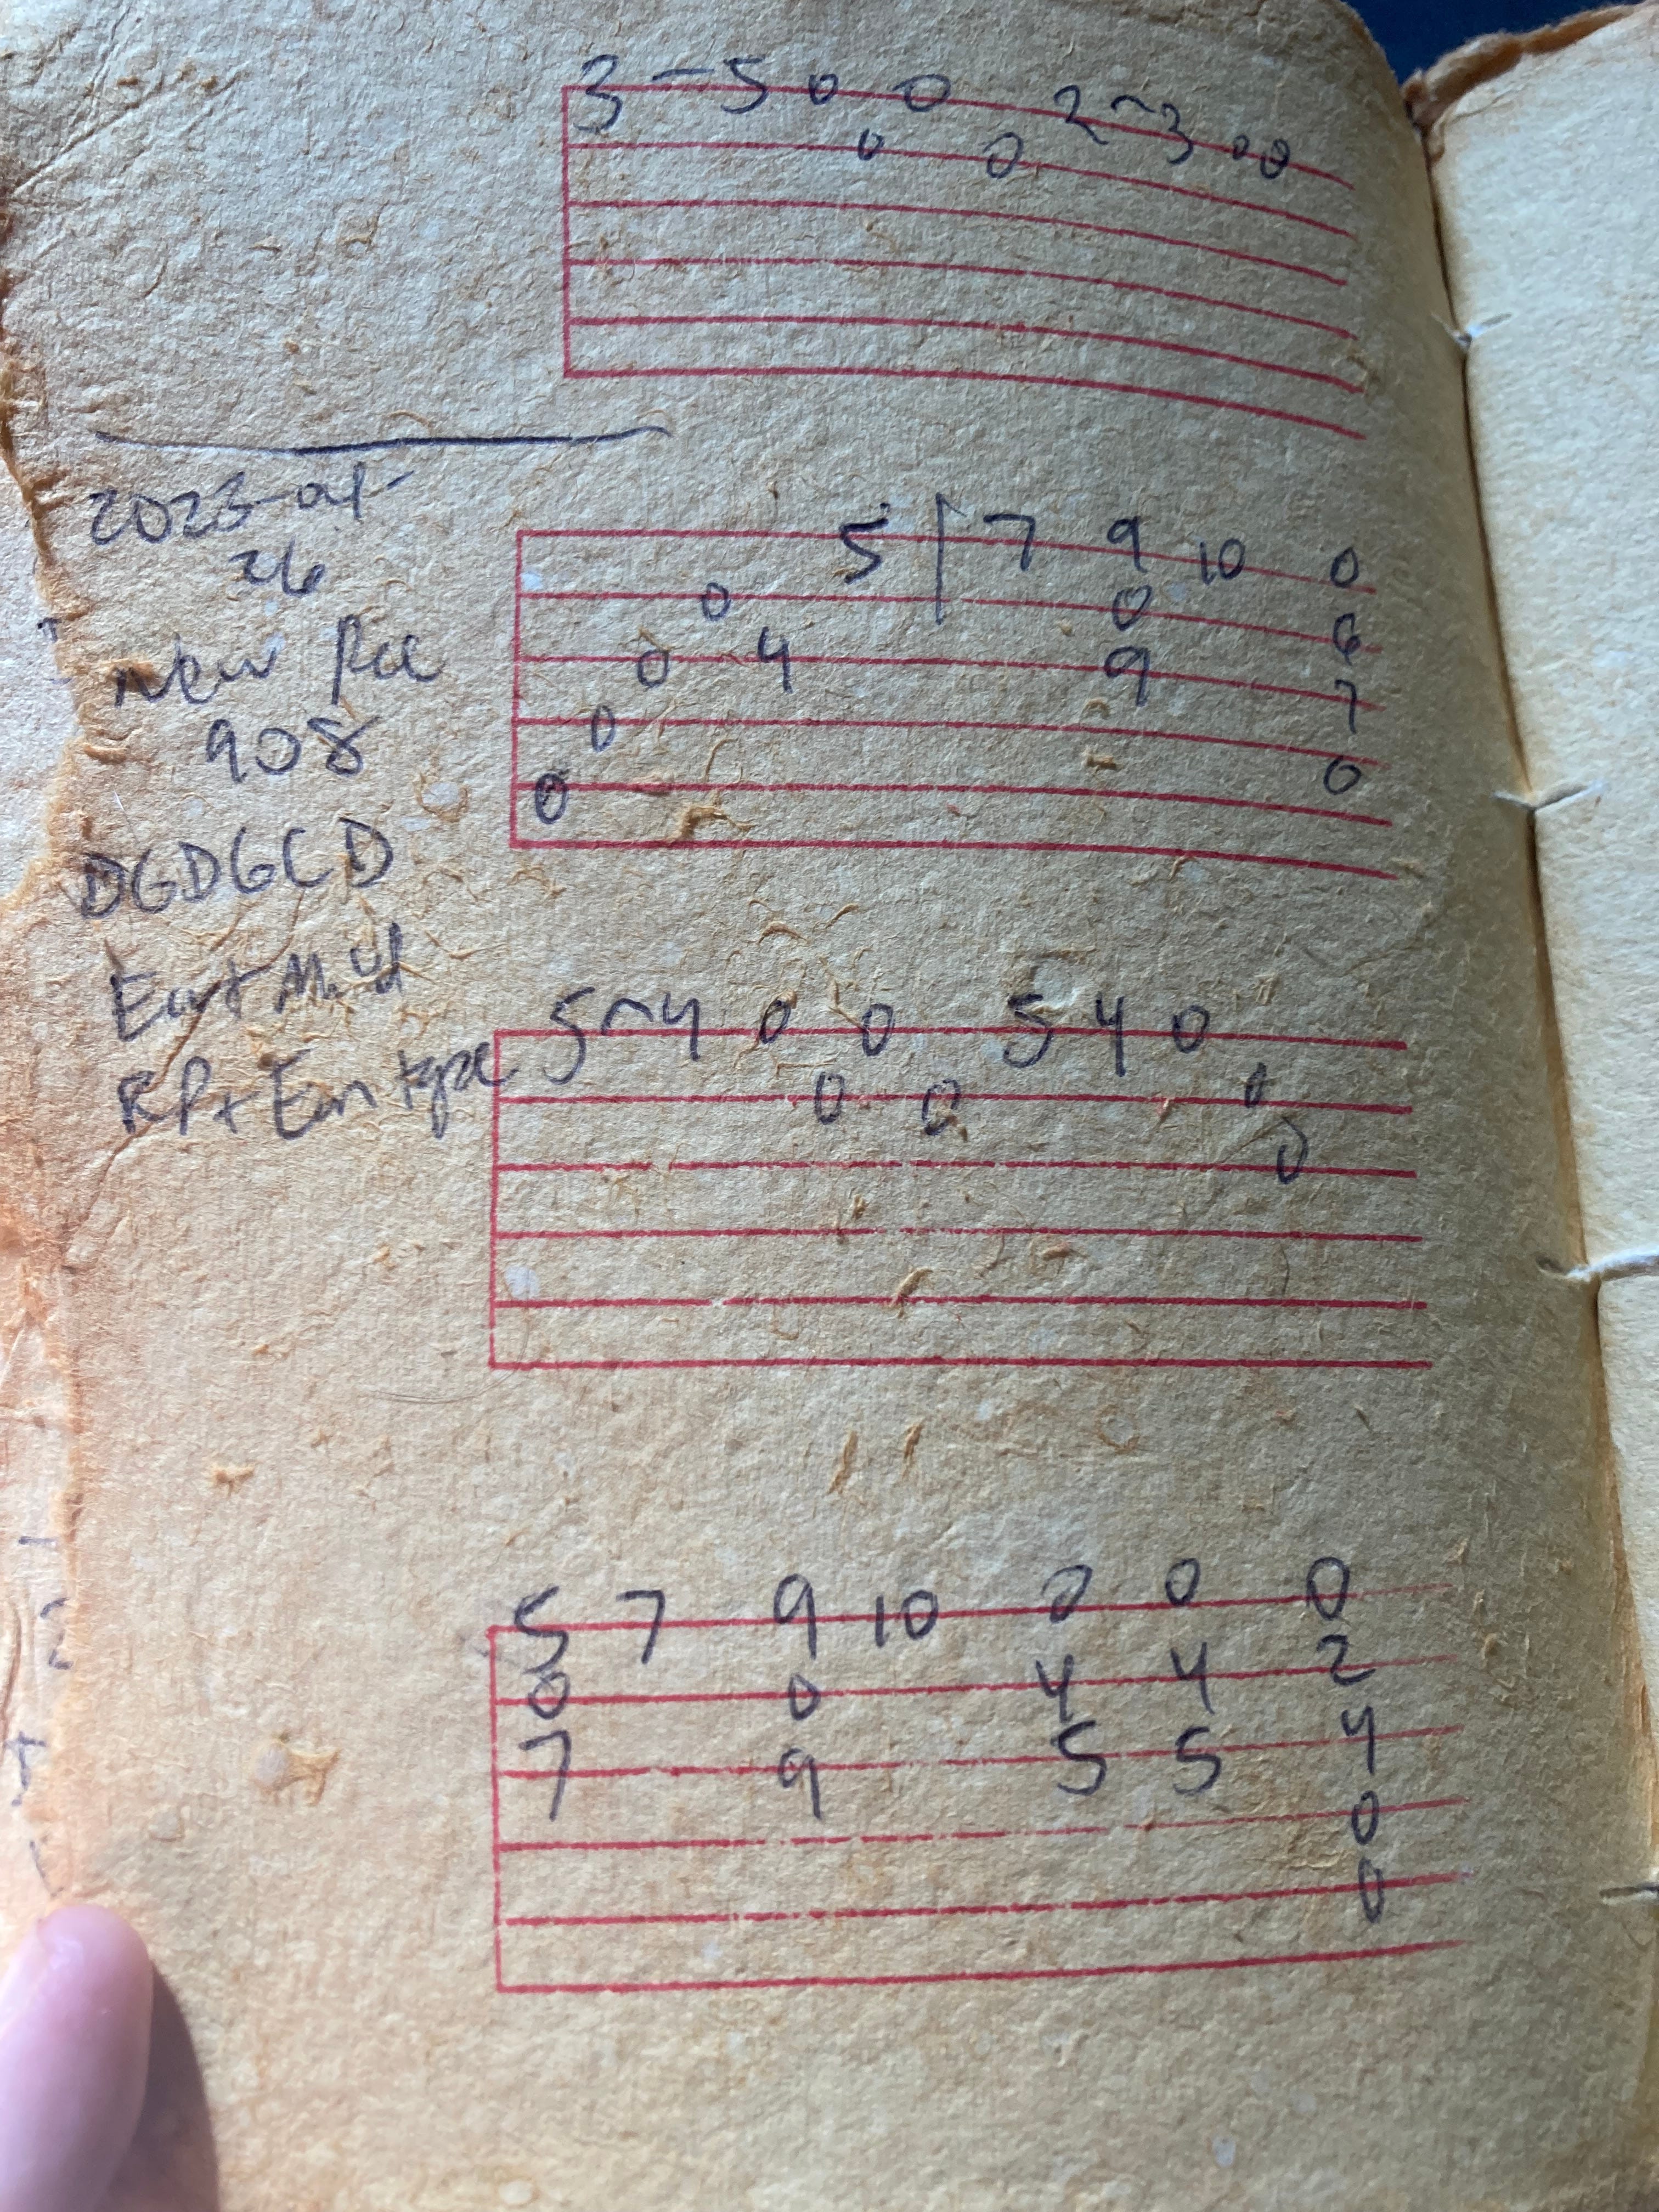 3 5 0 0 2 3 0 0
0 0
2023-01-
26
New Rec
908
DGDGCD
5 | 7 9 10 0
0 0 6
0 4 9 7
0 0
0
5 4 0 0 5 4 0
0 0 0
0
5 7 9 10 0 0 0
0 0 4 4 2
7 9 5 5 4
0
0